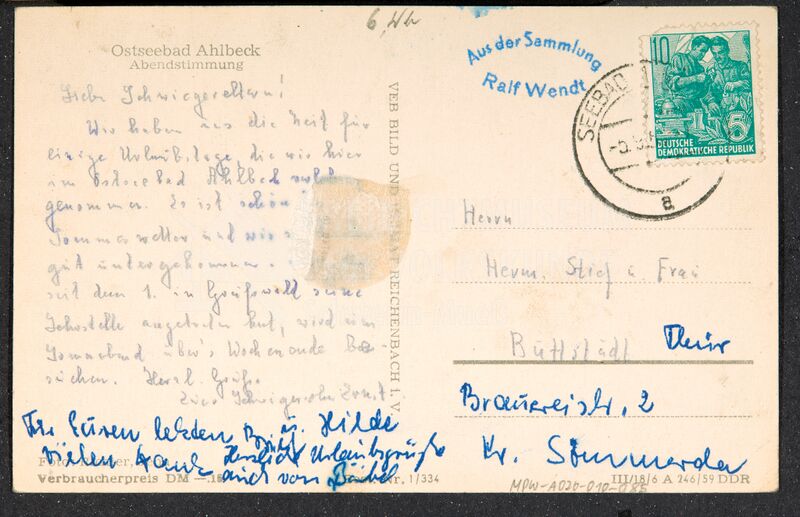 6, Wb
Ostseebad Ahlbeck
Abendstimmung
Aus der Sammlung
Ralf Wendt
10
5
DEUTSCHE
DEMOKRATISCHE REPUBLIK
SEEBAD
-5.9.5
a
Liebe Schwiegereltern!
Wir haben uns die Zeit für
einige Urlaubstage, die wir hier
im Ostseebad Ahlbeck
genommen. Es ist schön
Sommerwetter und wir s
gut untergekommen.
seit dem 1. in Greifswald seine
Lehrstelle angetreten hat, wird am
Sonnabend über's Wochenende be-
suchen. Herzl. Grüße
Euer Schwiegersohn Ernst
u. Hilde
Für Euren letzten Brief
vielen Dank Herzliche Urlaubsgrüße
auch von Bärbel
VEB BILD UND HEIMAT REICHENBACH I. V.
Herrn
Herm. Stief u. Frau
Buttstädt Thür
Brauereistr. 2
Kr. Sömmerda
Foto
Verbraucherpreis DM —.15
Nr. 1/334
MPW-A020-010-085
III/18/6 A 246/59 DDR